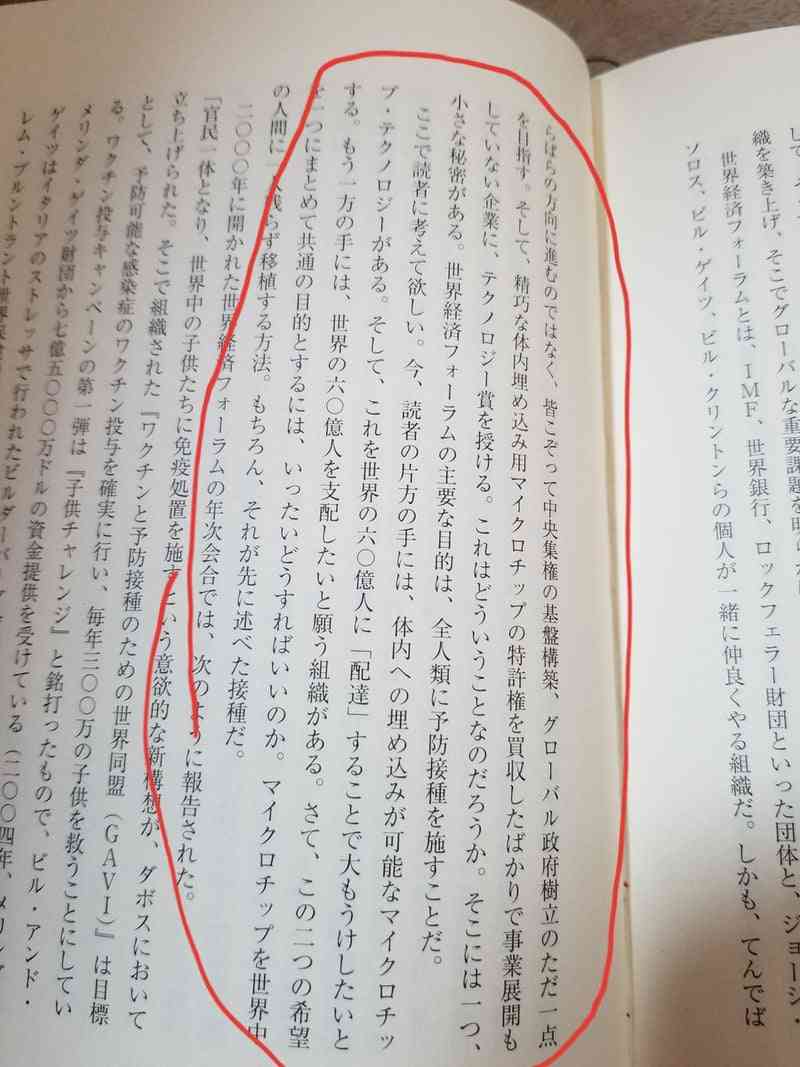 して、
織を築き上げ、そこでグローバルな重要課題を明らか
世界経済フォーラムとは、IMF、世界銀行、ロックフェラー財団といった団体と、ジョージ・
ソロス、ビル・ゲイツ、ビル・クリントンらの個人が一緒に仲良くやる組織だ。しかも、てんでば
らばらの方向に進むのではなく、皆こぞって中央集権の基盤構築、グローバル政府樹立のただ一点
を目指す。そして、精巧な体内埋め込み用マイクロチップの特許権を買収したばかりで事業展開も
していない企業に、テクノロジー賞を授ける。これはどういうことなのだろうか。そこには一つ、
小さな秘密がある。世界経済フォーラムの主要な目的は、全人類に予防接種を施すことだ。
ここで読者に考えて欲しい。今、読者の片方の手には、体内への埋め込みが可能なマイクロチッ
プ・テクノロジーがある。そして、これを世界の六〇億人に「配達」することで大もうけしたいと
する。もう一方の手には、世界の六〇億人を支配したいと願う組織がある。さて、この二つの希望
を一つにまとめて共通の目的とするには、いったいどうすればいいのか。マイクロチップを世界中
の人間に一人残らず移植する方法。もちろん、それが先に述べた接種だ。
二〇〇〇年に開かれた世界経済フォーラムの年次会合では、次のように報告された。
「官民一体となり、世界中の子供たちに免疫処置を施すという意欲的な新構想が、ダボスにおいて
立ち上げられた。そこで組織された『ワクチンと予防接種のための世界同盟（GAVI）』は目標
として、予防可能な感染症のワクチン投与を確実に行い、毎年三〇〇万の子供を救うことにしてい
る。ワクチン投与キャンペーンの第一弾は『子供チャレンジ』と銘打ったもので、ビル・アンド・
メリンダ・ゲイツ財団から七億五〇〇〇万ドルの資金提供を受けている（二〇〇四年、メリンダ
ゲイツはイタリアのストレッサで行われたビルダーバーグ
レム・ブルントラント世界保健